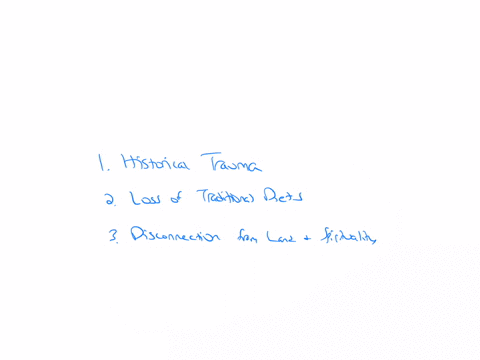 1. Historical Trauma
2. Loss of Traditional Diets
3. Disconnection from Land + Spirituality